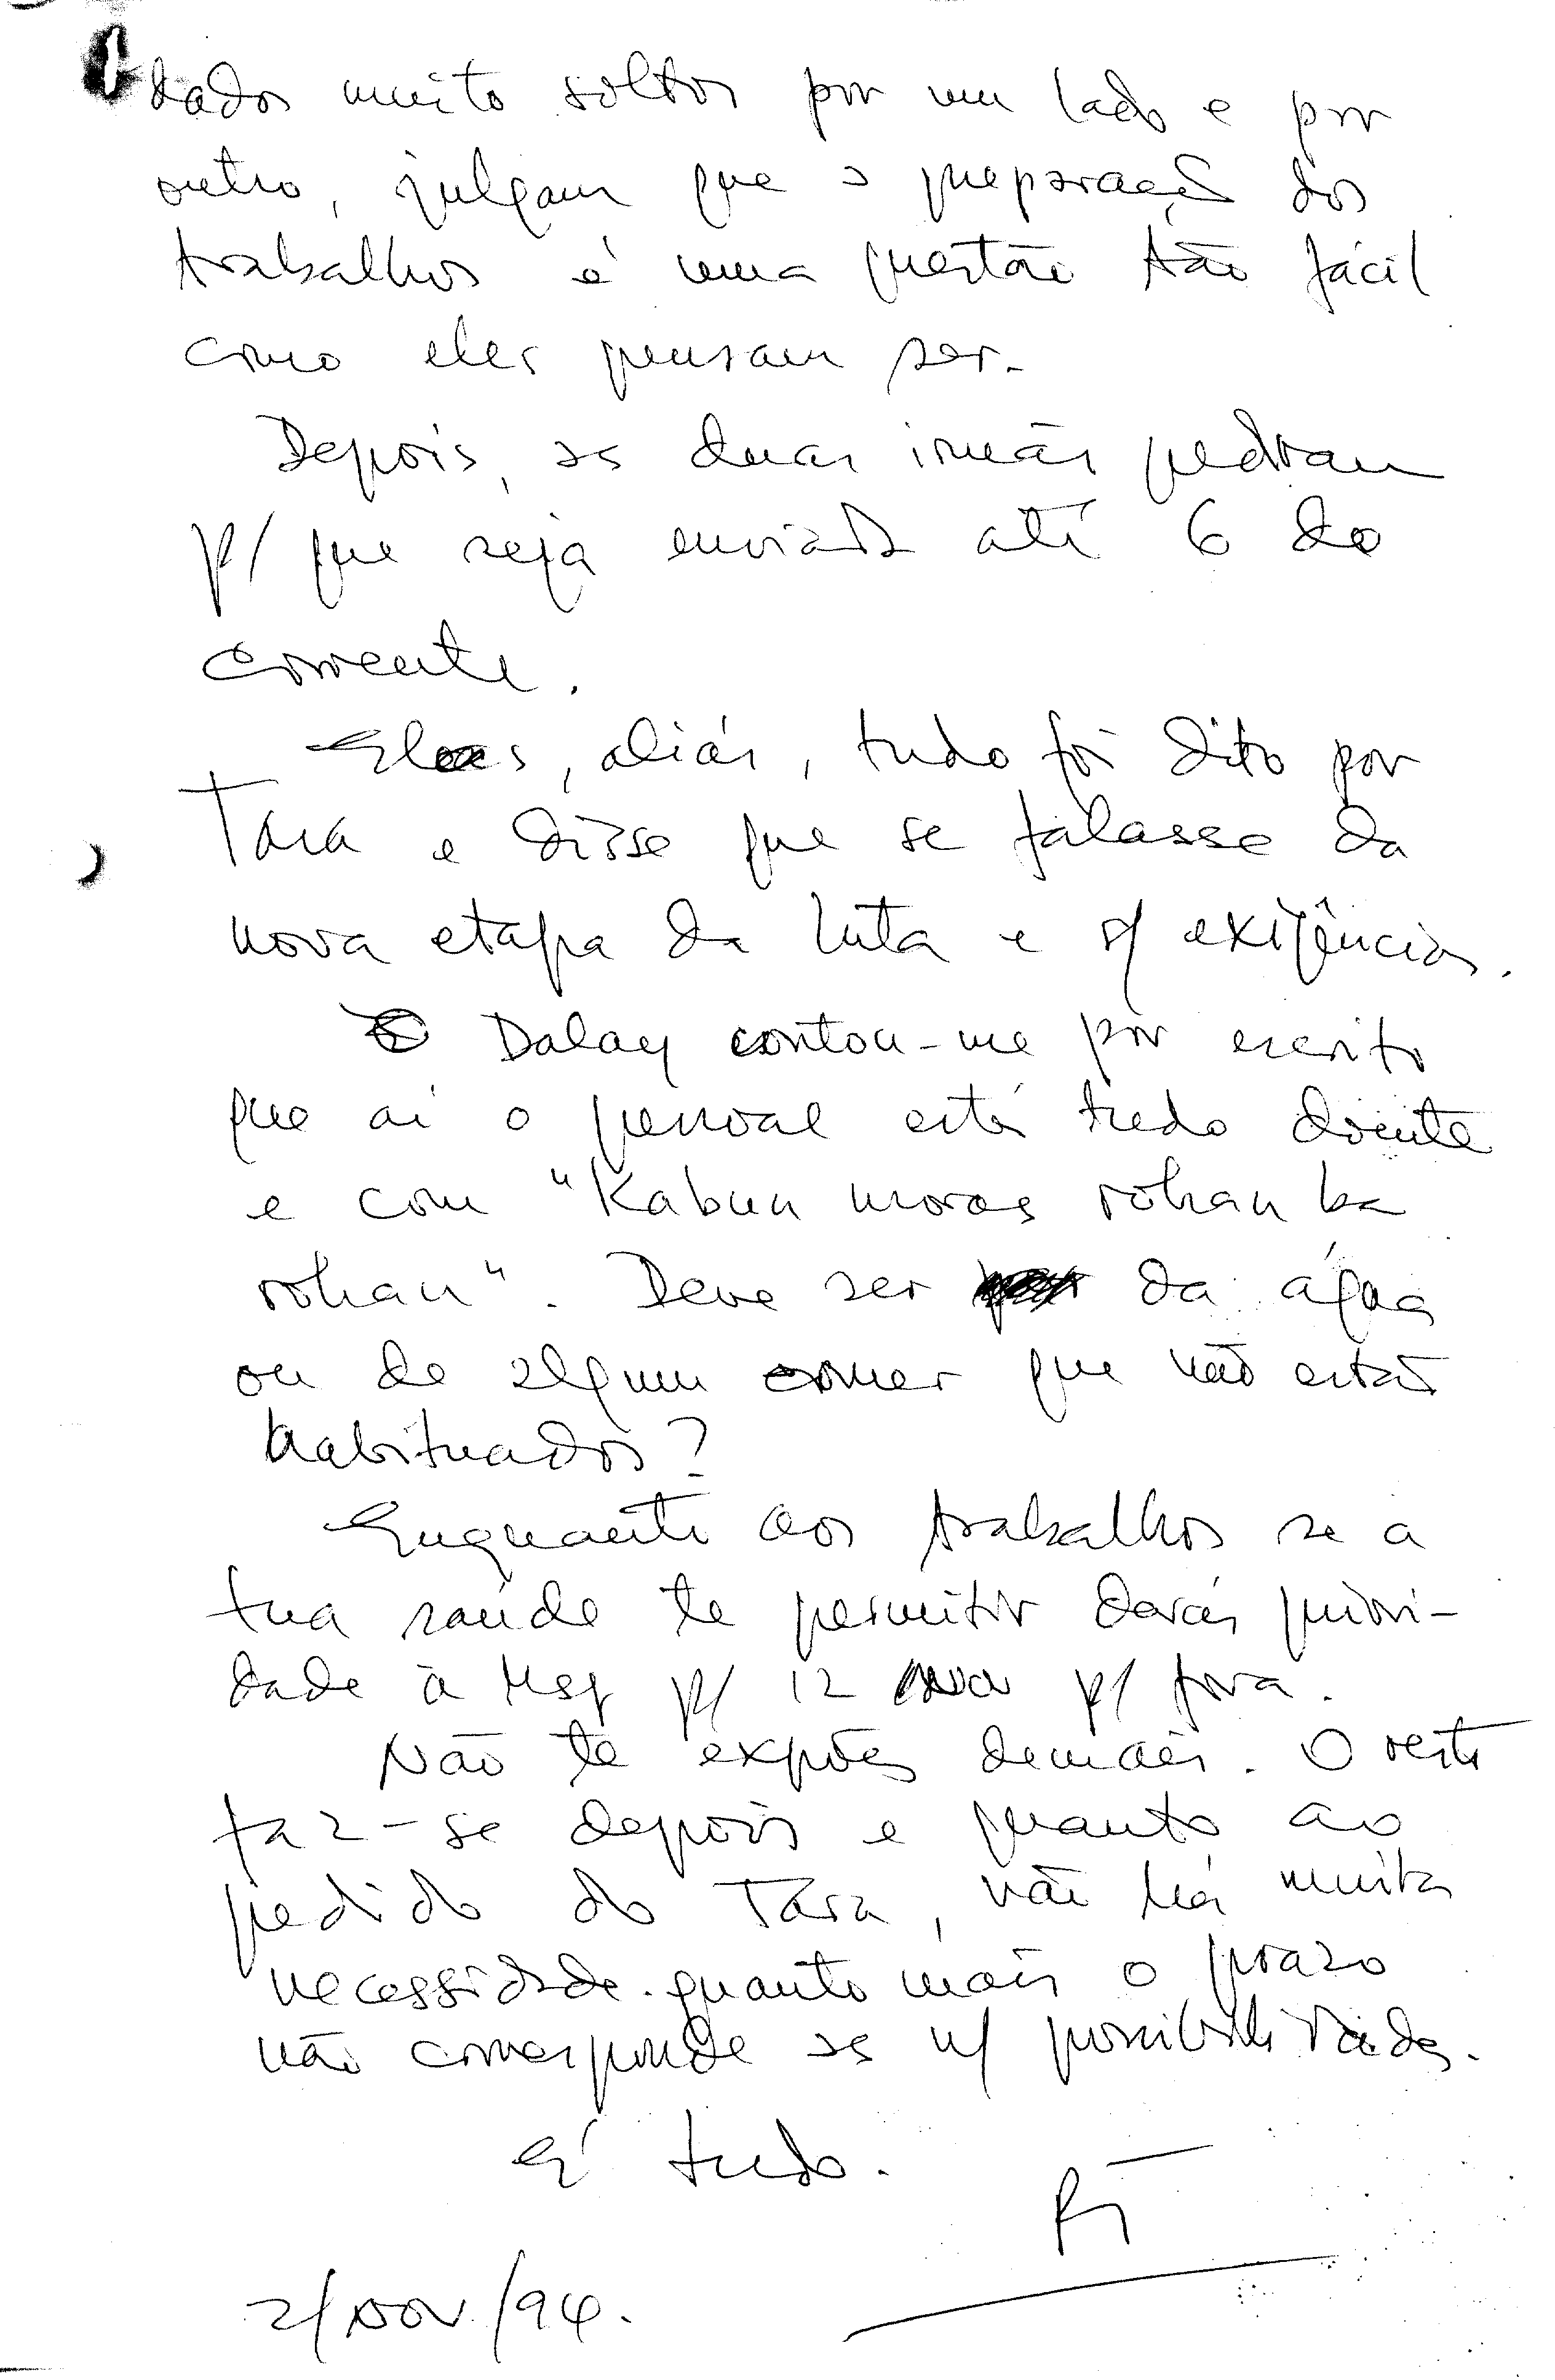 dados muito soltos por um lado e por
outro, julgam que a preparação dos
trabalhos é uma questão tão fácil
como eles pensam ser.
Depois, as duas irmãs pediram
p/ que seja enviada até 6 do
corrente.
Elas, aliás, tudo foi dito por
Tara e disse que se falasse da
nova etapa da luta e s/ exigências.
O Dalay contou-me por escrito
que aí o pessoal está tudo doente
e com "Kabun moras rohan ba
rohan". Deve ser da água
ou de algum comer que não estão
habituados?
Enquanto aos trabalhos se a
tua saúde te permitir darás priori-
dade à Msg p/ 12 nov p/ fora.
Não te expões demais. O resto
faz-se depois e quanto ao
pedido do Tara, não há muita
necessidade. quanto mais o prazo
não corresponde as n/ possibilidades.
É tudo.
2/NOV/94.